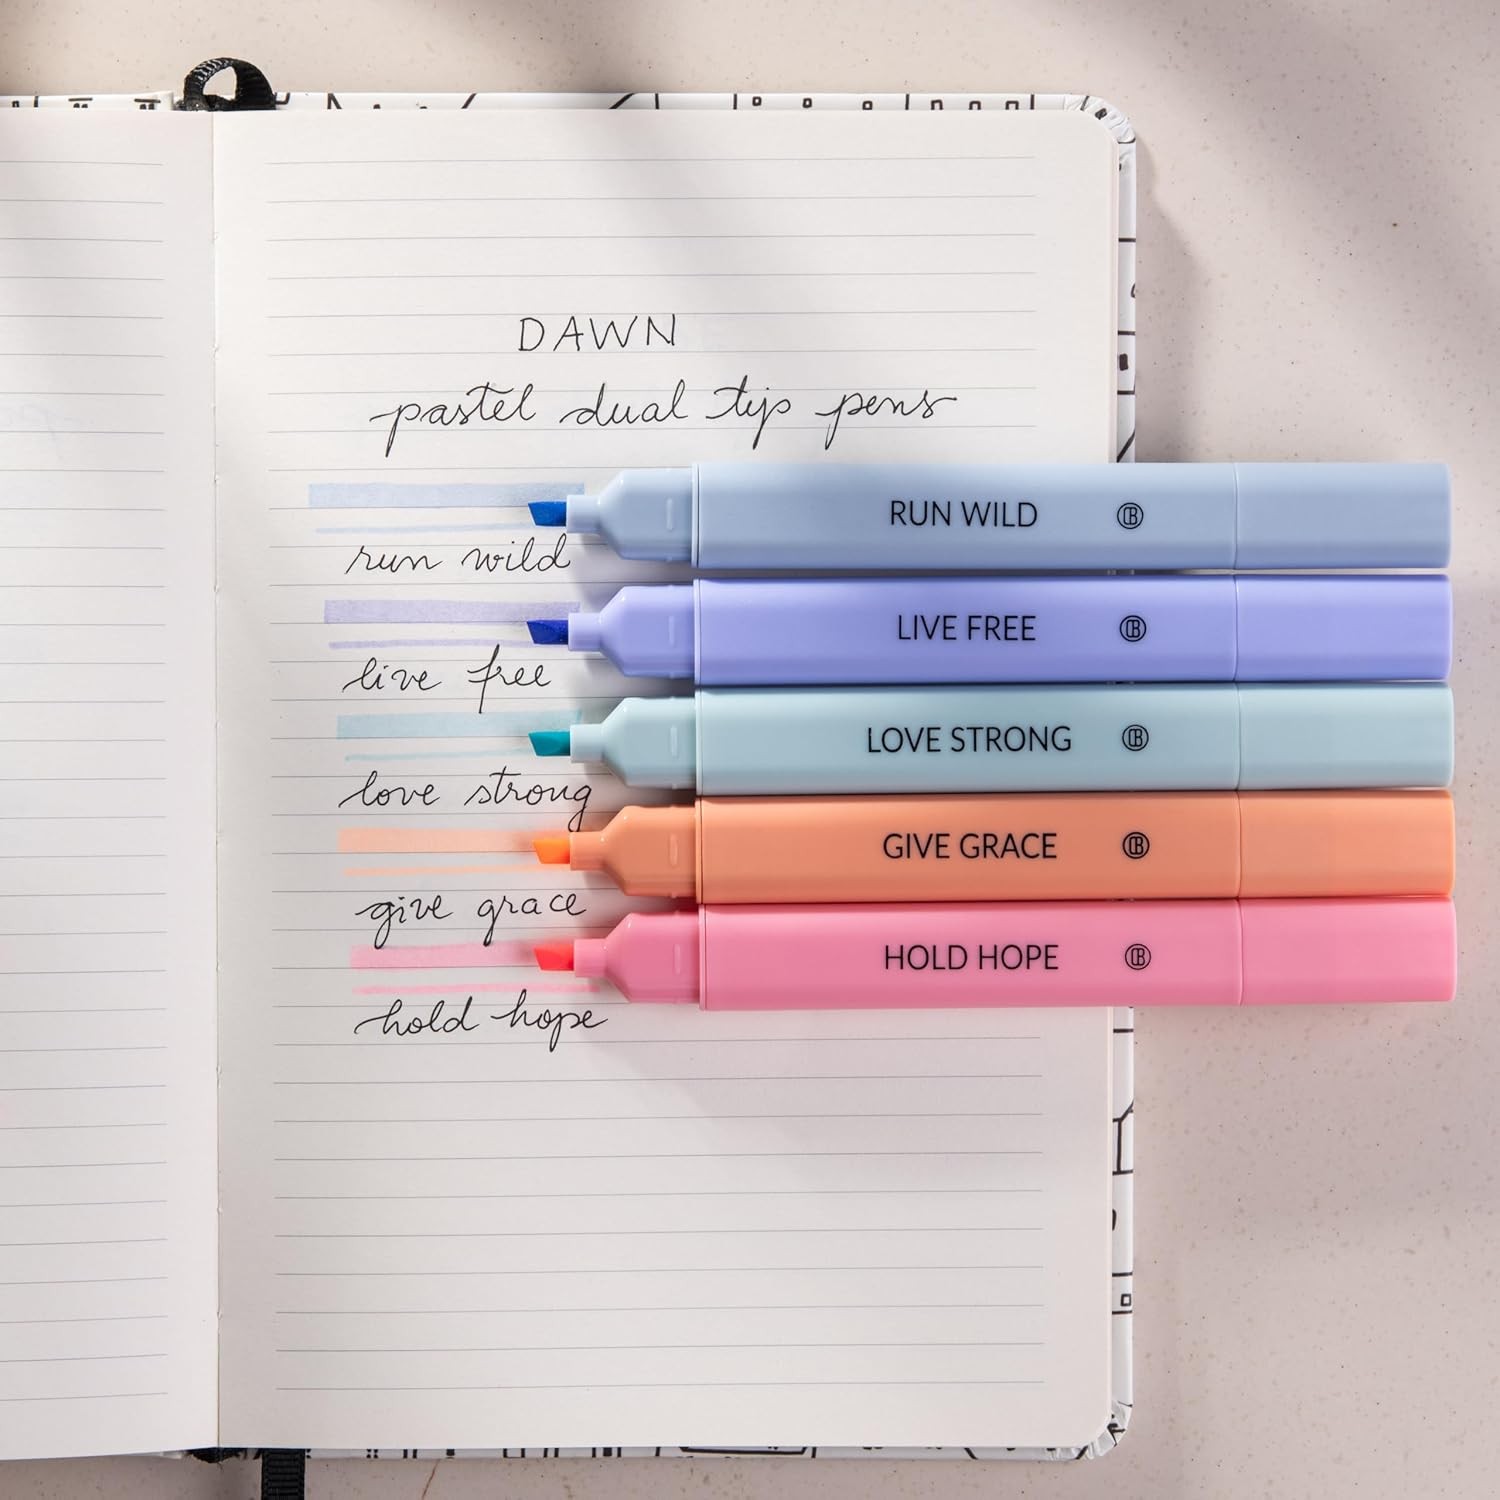 DAWN
pastel dual tip pens
RUN WILD
run wild
LIVE FREE
live free
LOVE STRONG
love strong
GIVE GRACE
give grace
HOLD HOPE
hold hope